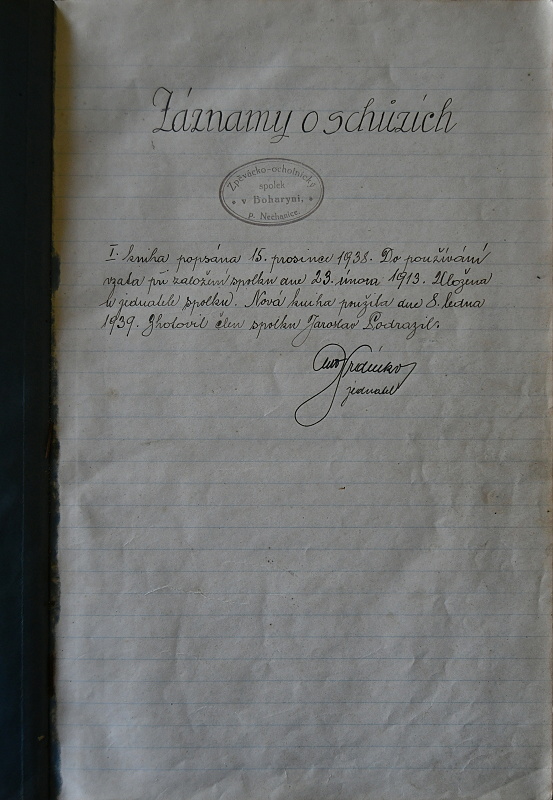 Záznamy o schůzích
Zpěvácko-ochotnický
spolek
v Boharyni,
p. Nechanice.
I. kniha popsána 15. prosince 1938. Do používání
vzata při založení spolku dne 23. února 1913. Uložena
u jednatele spolku. Nová kniha použita dne 8. ledna
1939. Zhotovil člen spolku Jaroslav Podrazil.
jednatel